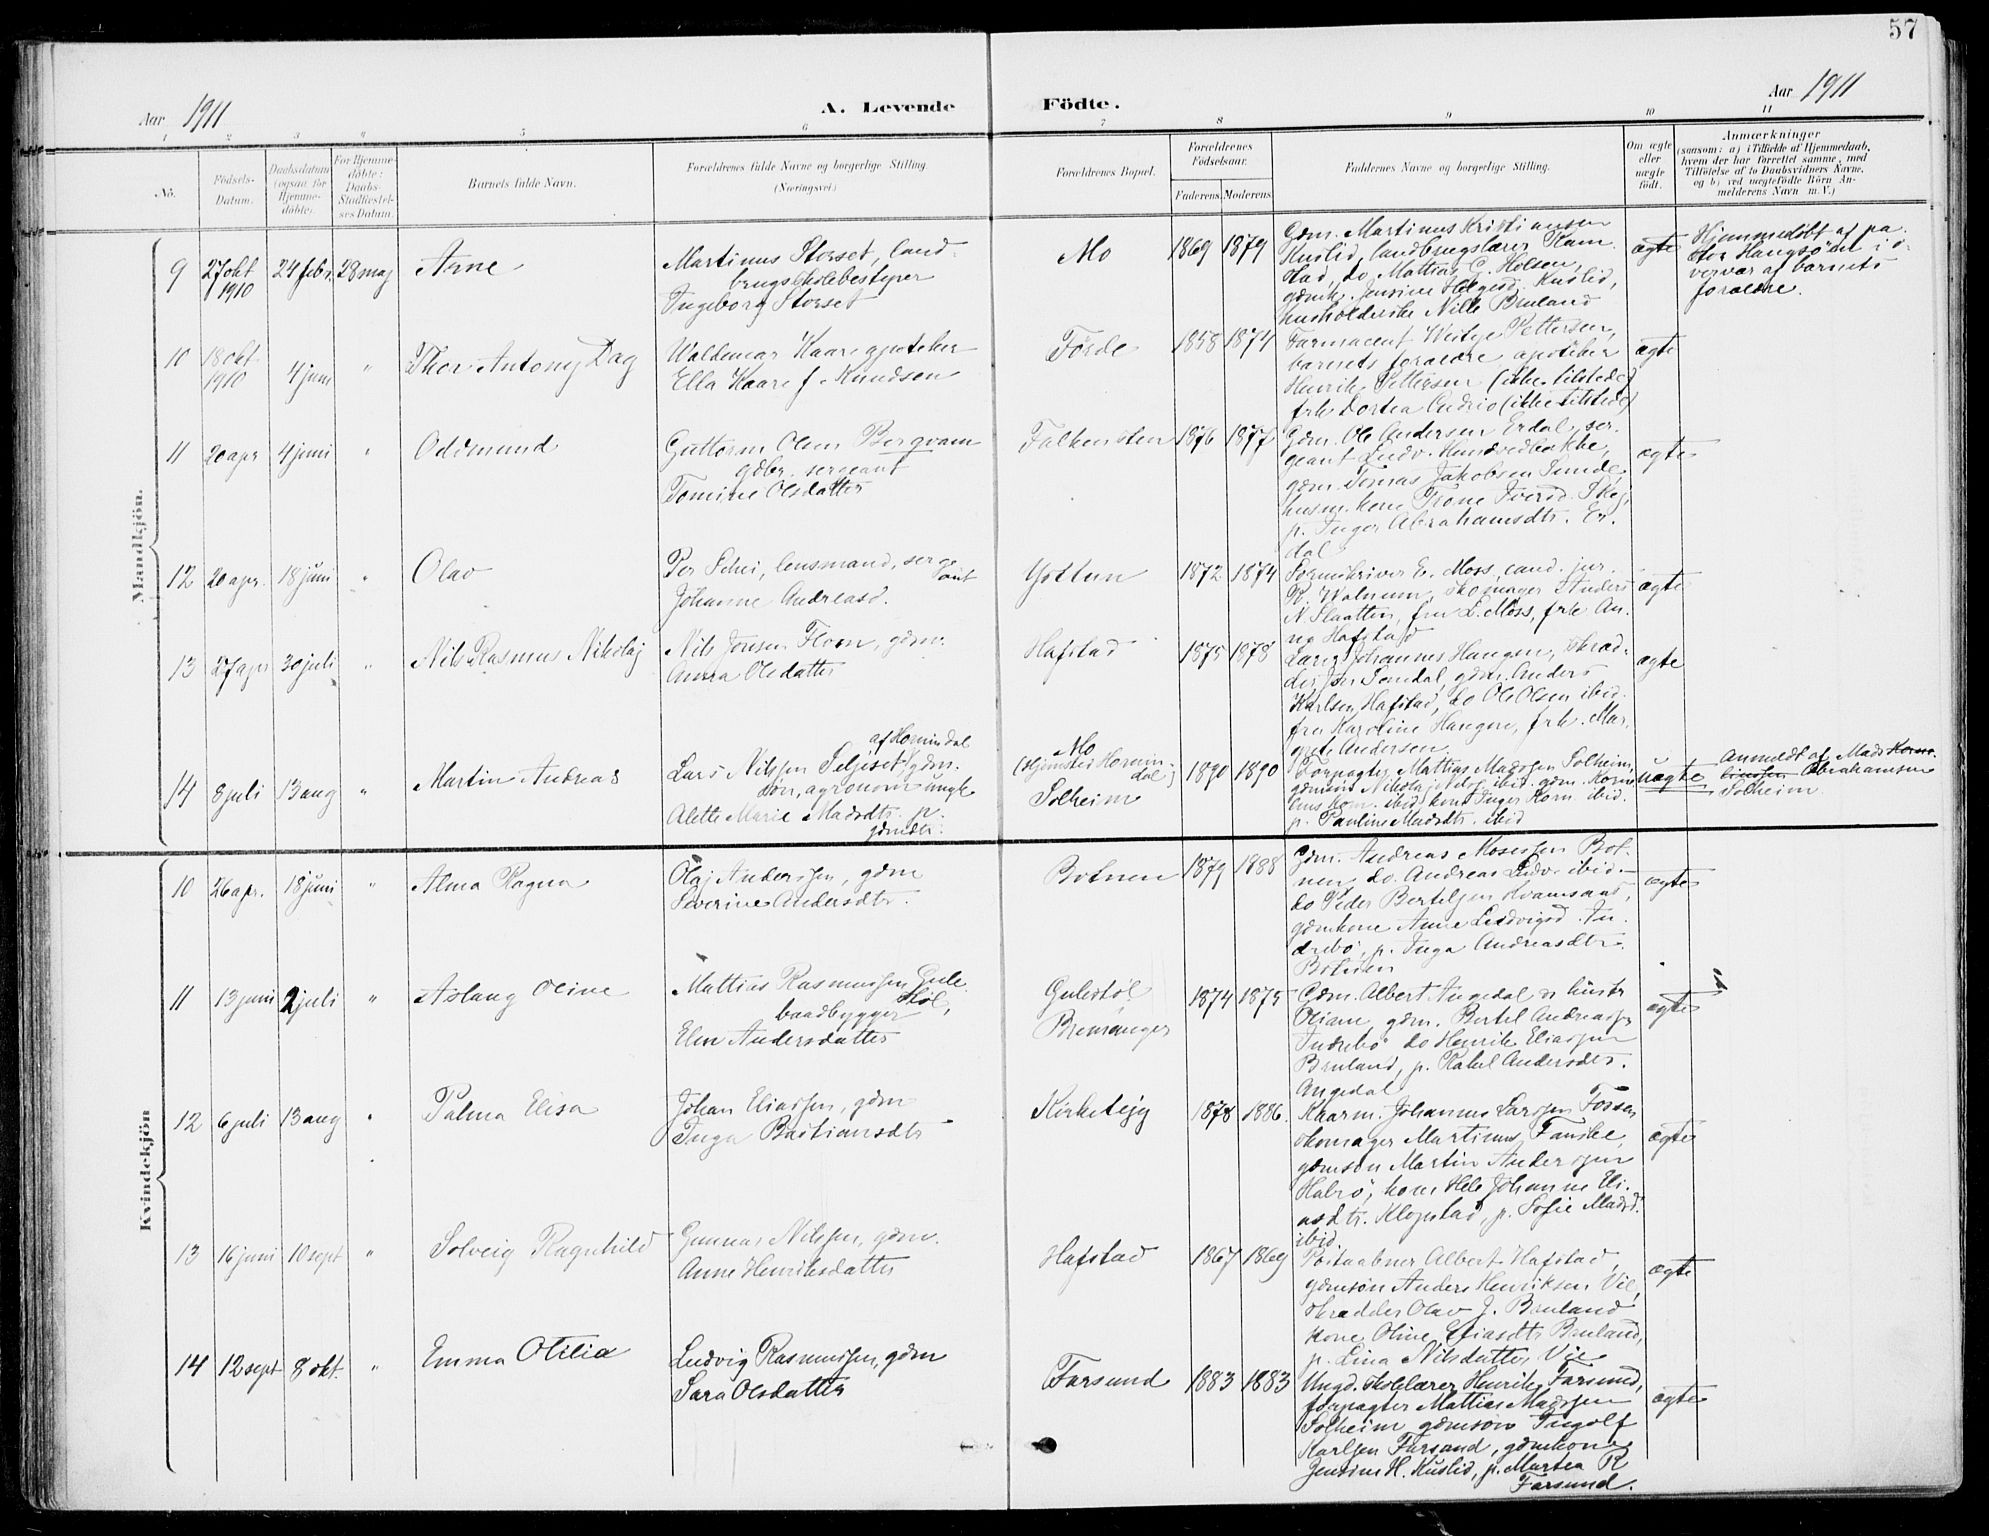 57
Aar 1911
A. Levende Födte.
Aar 1911
1 2 3 4 5 6 7 8 9 10 11
No.
Födsels-Datum.
Daabsdatum (ogsaa for Hjemmedöbte).
For Hjemmedöbte: Daabs-Stadfæstelses Datum.
Barnets fulde Navn.
Forældrenes fulde Navne og borgerlige Stilling.
(Næringsvei.)
Forældrenes Bopæl.
Forældrenes Födselsaar.
Faderens. Moderens.
Faddernes Navne og borgerlige Stilling.
Om ægte eller uægte födt.
Anmærkninger
(saasom: a) i Tilfælde af Hjemmedaab,
hvem der har forrettet samme, med
Tilföielse af to Daabsvidners Navne,
og b) ved uægtefödte Börn Anmelderens Navn m. V.)
Mandkjön.
9 27 okt 1910 24 febr. 28 maj Arne
Martinus Storset, landbrugsskolebestyrer
Ingeborg Storset
Mo 1869 1879
Gdm. Martinus Kristiansen
Kuslid, landbrugslærer
stad, do Mattias G. Holsen,
gdmk. Jensine Helgesd. Kuslid,
husholderske Nille Bruland
ægte
Hjemmedöbt af pastor Haugsöen i overvær af barnets
forældre.
10 18 okt 1910 4 juni " Thor Antony Dag
Waldemar Kaare apoteker
Ella Kaare f Knudsen
Förde 1858 1874
Farmaceut Pettersen,
barnets forældre apotheker
Henrik Pettersen (ikke tilstede)
frk Dortea (ikke tilstede)
ægte
11 20 apr 4 juni " Oddmund
Guttorm Olsen Bergvam
gdbr. sergeant
Tomine Olsdatter
Falkensten 1876 1877
Gdm. Ole Andersen Erdal, sergeant Ludv. Hundvedbakke,
gdm. Tomas Jakobsen Sunde,
husm. kone Trone Iversd. Skej,
p. Inger Abrahamsdtr. Erdal
ægte
12 20 apr. 18 juni " Olav
Per Schei, lensmand, sergeant
Johanne Andreasd.
Gottun 1872 1874
Sorenskriver E. Moss, cand. jur.
R. Walnum, skomager Anders
N. Slaatten, fru L. Moss, frk Anna Hafstad
ægte
13 27 apr 30 juli " Nils Rasmus Nikolaj
Nils Jensen Flom, gdm.
Anna Olsdatter
Hafstad 1875 1878
Lærer Johannes Haugen, skrædder Jon Sondal, gdm. Anders
Karlsen Hafstad, do Ole Olsen ibid.
fru Karoline Haugen, frk. Margrete Andersen
ægte
14 8 juli 13 aug " Martin Andreas
af Hornindal
Lars Nilssen Seljeset gdm.
sön, agronom ungk
Alette Marie Madsdtr. p.
gdmdtr.
Mo
(Hjemsted Hornindal)
Solheim
1890 1890
Forpagter Mattias Madssen Solheim,
gdmsön Nikolaj ibid. gdm. Kornelius Korn. ibid, kone Inger Korn. ibid.
p. Pauline Madsdtr. ibid
uægte
Anmeldt af Mads Abrahamsen
Solheim.
Kvindekjön
10 26 apr. 18 juni " Alma Ragna
Olaj Anderssen, gdm
Severine Andersdtr.
Botnen 1879 1888
Gdm. Andreas Mosessen Botnen do. Andreas Ludv. ibid.
do Peder Bertelsen Kvamsaas,
gdmkone Anne Ludvigsd. Indrebö, p. Inga Andreasdtr.
Botnen
ægte
11 13 juni 2 juli " Aslaug Oline
Mattias Rasmussen Gulestöl,
baadbygger
Elen Andersdatter
Gulestöl
Bremanger
1874 1875
Gdm. Albert Angedal & hustr
Oliane, gdm. Bertel Andreassen
Indrebö do Henrik Eliassen
Bruland, p. Rakel Andersdtr.
Angedal
ægte
12 6 juli 13 aug " Palma Elisa
Johan Eliassen, gdm
Inga Bastiansdtr
Kirketejg 1878 1886.
Kaarm. Johannes Larssen Fossen
skomager Martinus Fauske,
gdmsön Martin Anderssen
Halbrö, kone Johanne Eliasdtr. Klopstad, p. Sofie Madsd.
ibid
ægte
13 16 juni 10 sept " Solveig Ragnhild
Gunnar Nilssen, gdm.
Anne Henriksdatter
Hafstad 1867 1869
Postaabner Albert Hafstad,
gdmsön Anders Henriksen Vie,
skrædder Olav J. Bruland
kone Oline Eliasdtr Bruland,
p. Lina Nilsdatter Vie
ægte
14 12 sept 8 okt. " Emma Otilia
Ludvig Rasmussen, gdm
Sara Olsdatter
Farsund 1883 1883
Ungd. skolelærer Henrik Farsund,
forpagter Mattias Madssen
Solheim gdmsön Ingolf
Karlsen Farsund, gdmkone
Jensine H. Kuslid, p. Martea R
Farsund.
ægte